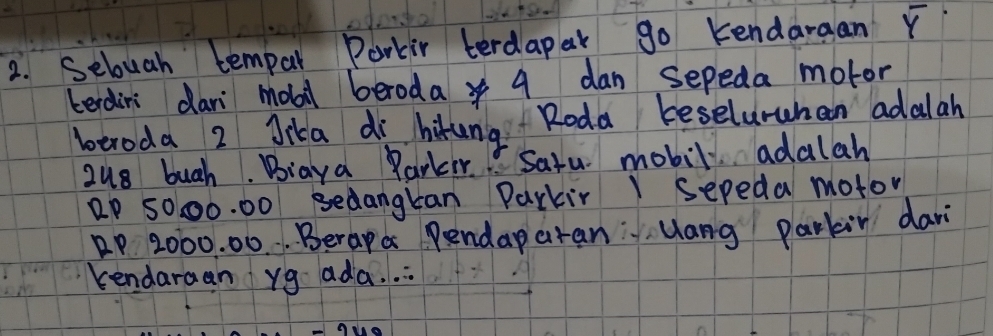 2. Sebuah tempat Parkir terdapat 90 kendaraan Y
terdiri dari mobil beroda 4 dan sepeda motor
beroda 2 Jika di hitung Roda keseluruhan adalah
248 buah. Biaya Parkir Satu mobil adalah
RP 5000.00 sedangkan Parkir 1 Sepeda motor
RP 2000.00. Berapa Pendapatan uang parkir dari
kendaraan yg ada...
= 248